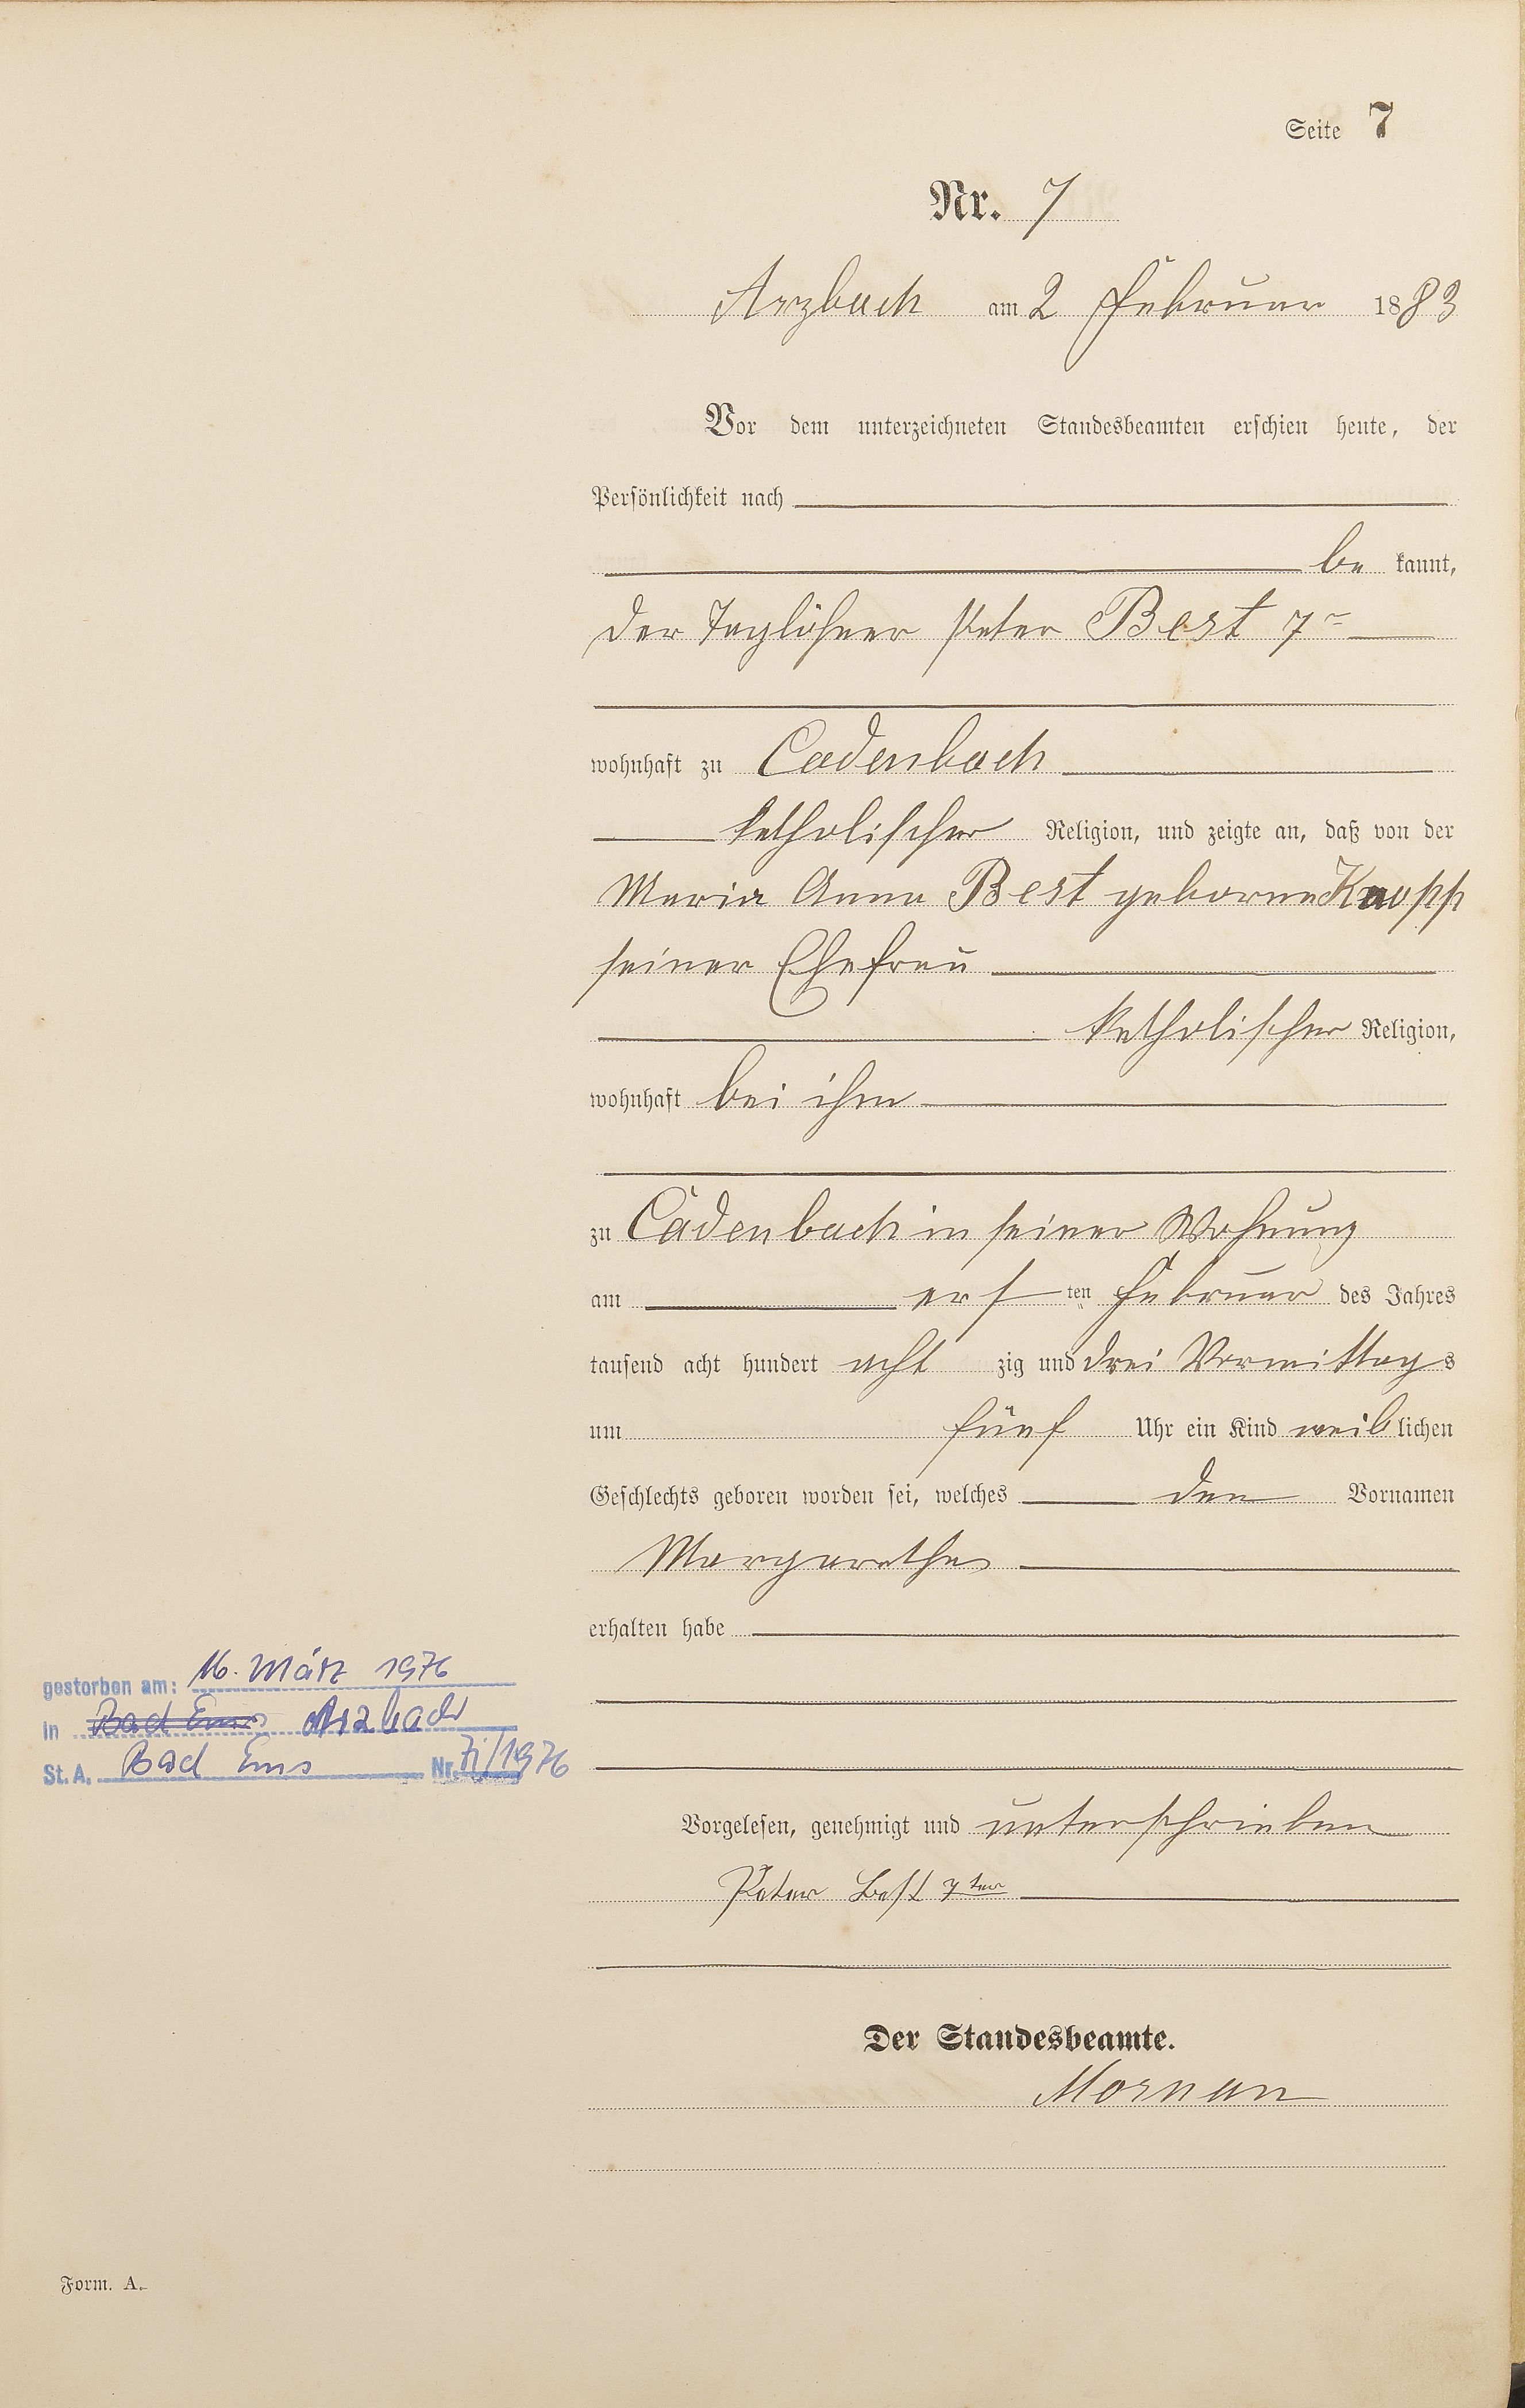 Seite 7
Nr. 7
Arzbach am 2 Februar 1883
Vor dem unterzeichneten Standesbeamten erschien heute, der
Persönlichkeit nach
be kannt,
der Taglöhner Peter Best 7r
wohnhaft zu Cadenbach
katholischer Religion, und zeigte an, daß von der
Maria Anna Best geborne Knopp
seiner Ehefrau
katholischer Religion,
wohnhaft bei ihm
zu Cadenbach in seiner Wohnung
am ersten Februar des Jahres
tausend acht hundert acht zig und drei Vormittags
um fünf Uhr ein Kind weiblichen
Geschlechts geboren worden sei, welches den Vornamen
Margarethe
erhalten habe
gestorben am: 16. März 1976
in Bad Ems Arzbach
St. A. Bad Ems Nr. /1976
Vorgelesen, genehmigt und unterschrieben
Peter Best 7ter
Der Standesbeamte.
Form. A.